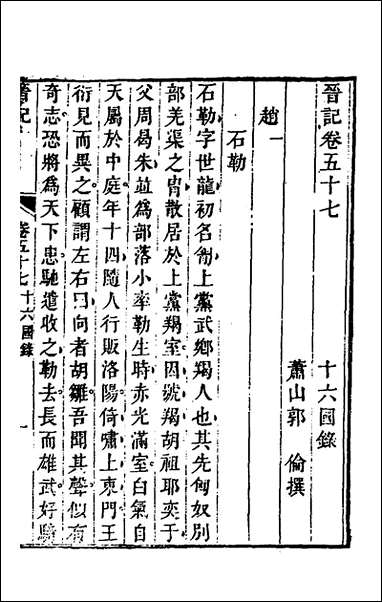 晉記卷五十七
十六國錄
蕭山郭倫撰
趙一
石勒
石勒字世龍初名㔨上黨武鄉羯人也其先匈奴別
部羌渠之胄散居於上黨羯室因號羯胡祖耶奕于
父周曷朱並爲部落小率勒生時赤光滿室白氣自
天屬於中庭年十四隨人行販洛陽倚嘯上東門王
衍見而異之顧謂左右曰向者胡雛吾聞其聲似有
奇志恐將爲天下患馳遣收之勒去長而雄武好騎
晉記
卷五十七十六國錄
一